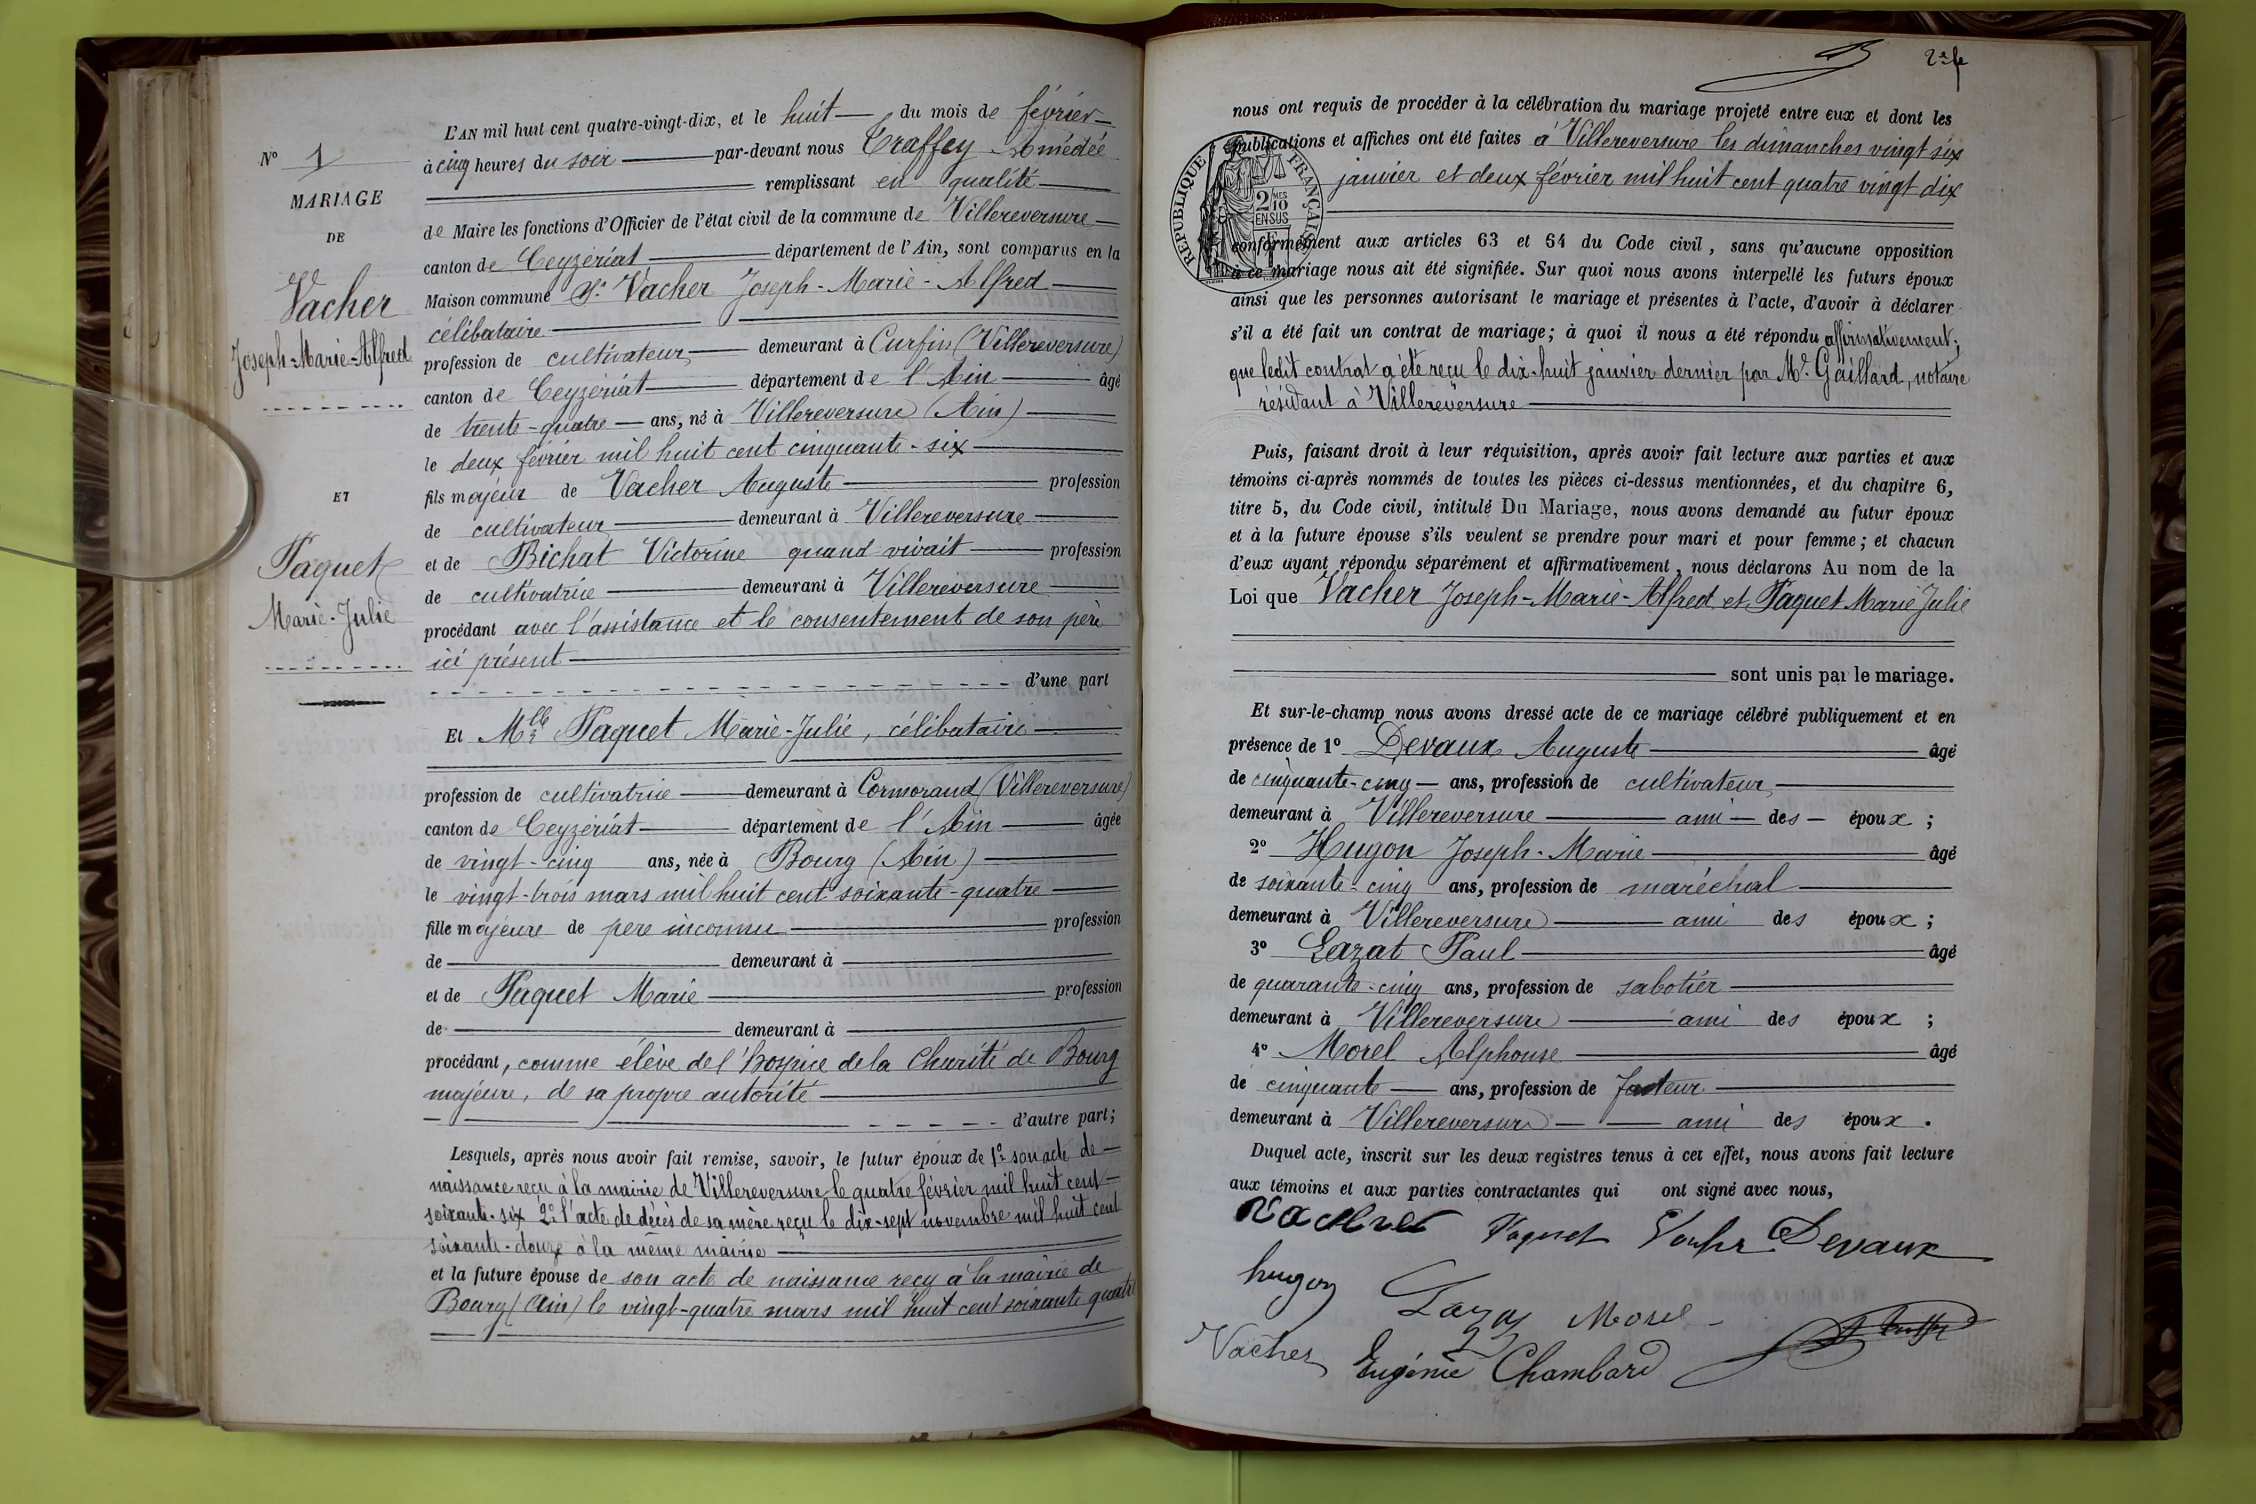 L'AN mil huit cent quatre-vingt-dix, et le huit du mois de février
N° 1
à cinq heures du soir par-devant nous Traffey Amédée
remplissant en qualité
MARIAGE
DE
de Maire les fonctions d'Officier de l'état civil de la commune de Villereversure
canton de Ceyzériat département de l'Ain, sont comparus en la
Vacher
Joseph-Marie-Alfred
Maison commune Sr. Vacher Joseph-Marie-Alfred
célibataire
profession de cultivateur demeurant à Curfin (Villereversure)
canton de Ceyzériat département de l'Ain âgé
de trente-quatre ans, né à Villereversure (Ain)
le deux février mil huit cent cinquante-six
ET
fils majeur de Vacher Auguste profession
de cultivateur demeurant à Villereversure
Paquet
Marie-Julie
et de Bichat Victorine quand vivait profession
de cultivatrice demeurant à Villereversure
procédant avec l'assistance et le consentement de son père
ici présent
d'une part
Et Mlle Paquet Marie-Julie, célibataire
profession de cultivatrice demeurant à Cormoraud (Villereversure)
canton de Ceyzériat département de l'Ain âgée
de vingt-cinq ans, née à Bourg (Ain)
le vingt-trois mars mil huit cent soixante-quatre
fille majeure de père inconnu profession
de demeurant à
et de Paquet Marie profession
de demeurant à
procédant, comme élève de l'hospice de la Charité de Bourg
majeure, de sa propre autorité
d'autre part;
Lesquels, après nous avoir fait remise, savoir, le futur époux de 1° son acte de
naissance reçu à la mairie de Villereversure le quatre février mil huit cent
soixante-six 2° l'acte de décès de sa mère reçu le dix-sept novembre mil huit cent
soixante-douze à la même mairie
et la future épouse de son acte de naissance reçu à la mairie de
Bourg (Ain) le vingt-quatre mars mil huit cent soixante quatre
2e f
nous ont requis de procéder à la célébration du mariage projeté entre eux et dont les
publications et affiches ont été faites à Villereversure les dimanches vingt six
janvier et deux février mil huit cent quatre vingt dix
RÉPUBLIQUE FRANÇAISE
2 MES
10
EN SUS
conformément aux articles 63 et 64 du Code civil, sans qu'aucune opposition
à ce mariage nous ait été signifiée. Sur quoi nous avons interpellé les futurs époux
ainsi que les personnes autorisant le mariage et présentes à l'acte, d'avoir à déclarer
s'il a été fait un contrat de mariage; à quoi il nous a été répondu affirmativement;
que ledit contrat a été reçu le dix-huit janvier dernier par Me. Gaillard, notaire
résidant à Villereversure
Puis, faisant droit à leur réquisition, après avoir fait lecture aux parties et aux
témoins ci-après nommés de toutes les pièces ci-dessus mentionnées, et du chapitre 6,
titre 5, du Code civil, intitulé Du Mariage, nous avons demandé au futur époux
et à la future épouse s'ils veulent se prendre pour mari et pour femme; et chacun
d'eux ayant répondu séparément et affirmativement, nous déclarons Au nom de la
Loi que Vacher Joseph-Marie-Alfred et Paquet Marie Julie
sont unis par le mariage.
Et sur-le-champ nous avons dressé acte de ce mariage célébré publiquement et en
présence de 1° Devaux Auguste âgé
de cinquante-cinq ans, profession de cultivateur
demeurant à Villereversure ami des époux;
2° Hugon Joseph-Marie âgé
de soixante-cinq ans, profession de maréchal
demeurant à Villereversure ami des époux;
3° Lazat Paul âgé
de quarante-cinq ans, profession de sabotier
demeurant à Villereversure ami des époux;
4° Morel Alphonse âgé
de cinquante ans, profession de facteur
demeurant à Villereversure ami des époux.
Duquel acte, inscrit sur les deux registres tenus à cet effet, nous avons fait lecture
aux témoins et aux parties contractantes qui ont signé avec nous,
Vacher Paquet Vacher Devaux
hugon
Lazat Morel
Vacher Eugénie Chambard